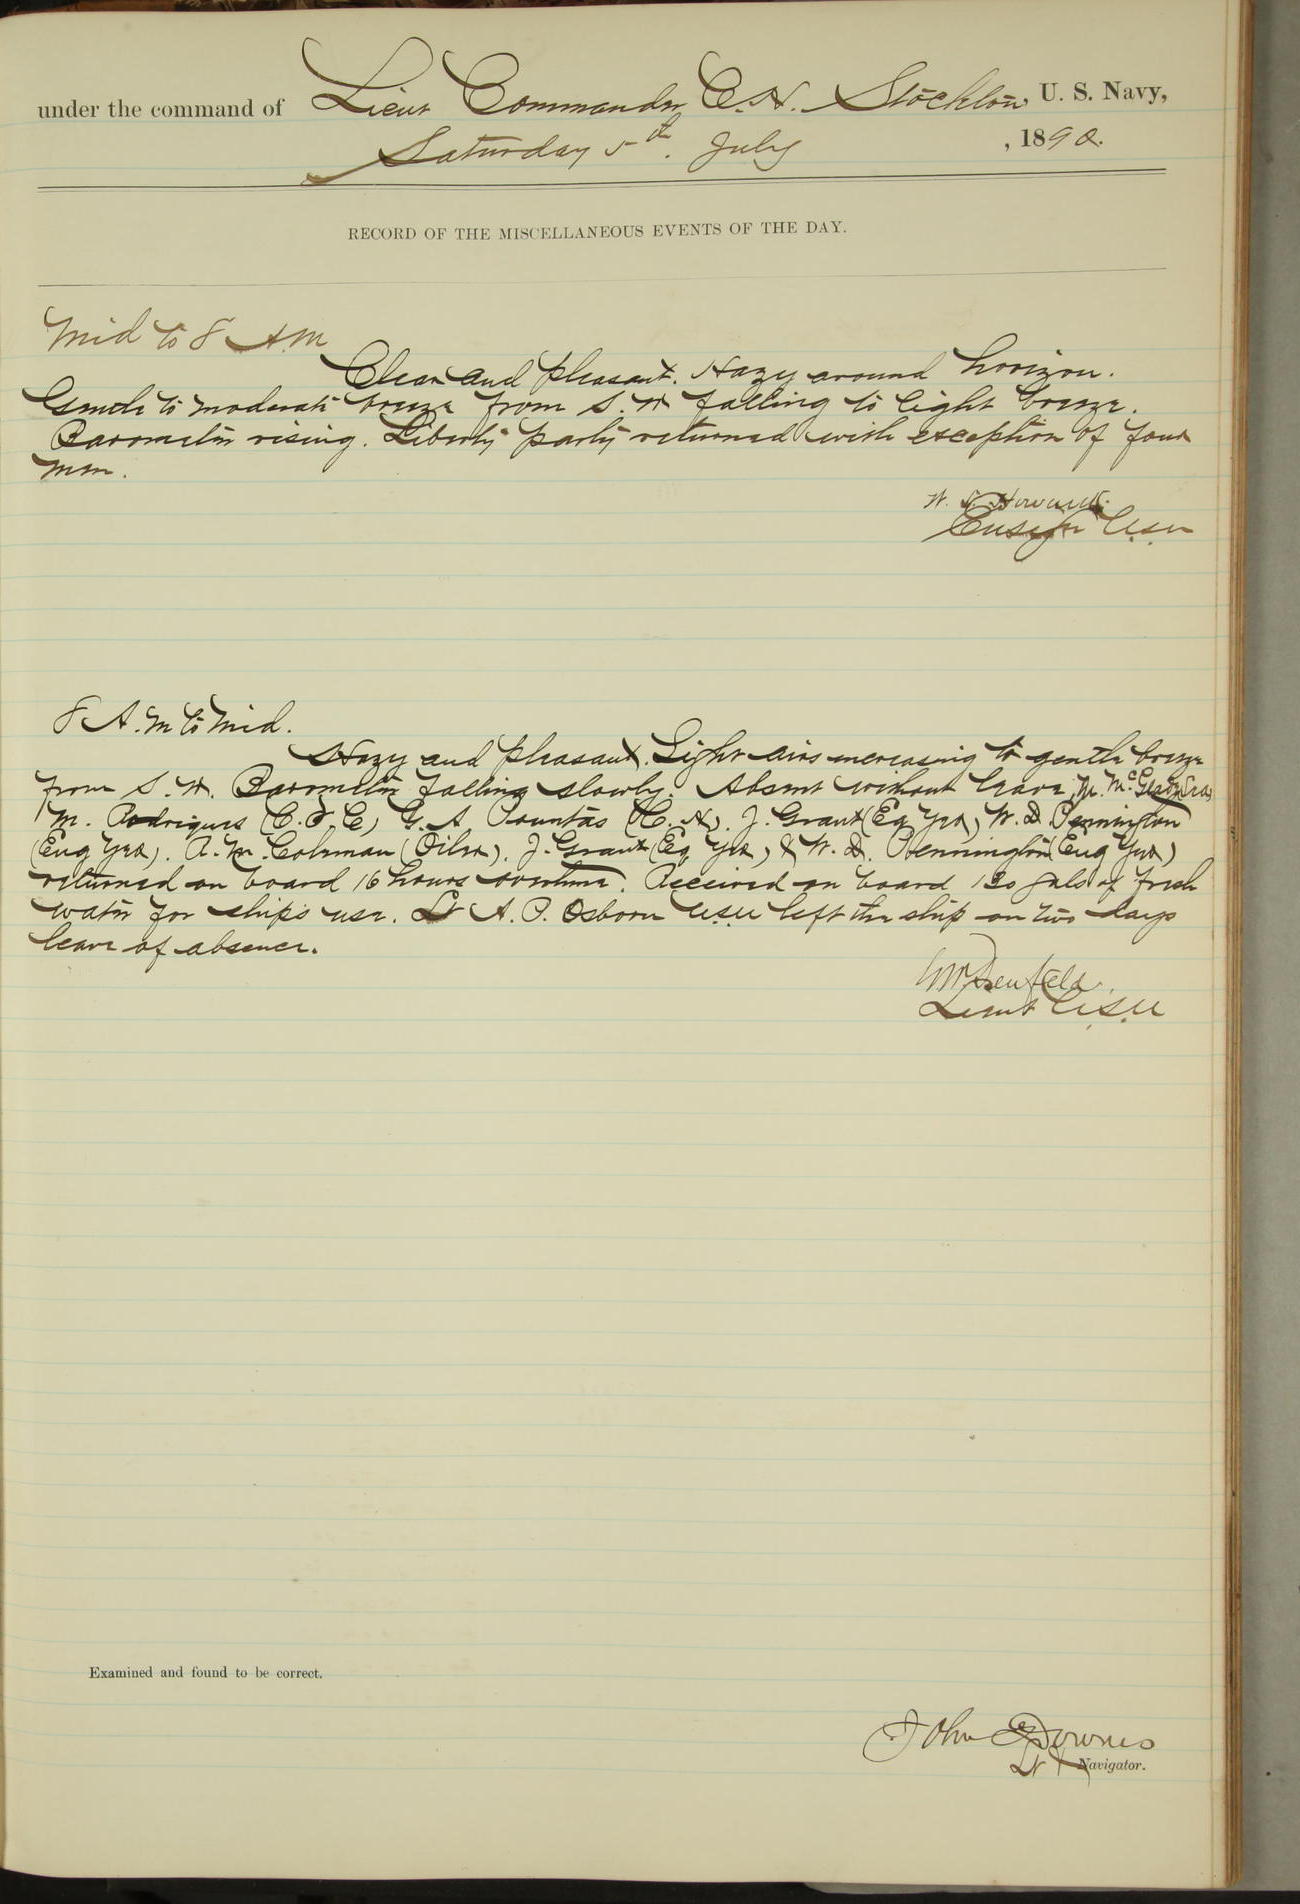 under the command of Lieut Commander C. H. Stockton U. S. Navy,
Saturday 5th. July , 1890.
RECORD OF THE MISCELLANEOUS EVENTS OF THE DAY.
Mid to 8 A.M
Clear and pleasant. Hazy around horizon.
Gentle to moderate breeze from S. W falling to light breeze.
Barometer rising. Liberty party returned with exception of four
men.
W. S. Howard.
Ensign U.S.N
8 A.M to Mid.
Hazy and pleasant. Light airs increasing to gentle breeze
from S. W. Barometer falling slowly. Absent without leave,
M. Rodrigues (C. F. C) G. A Pountas J. Grant (Eq Yeo) W. D. Pennington
(Eng Yeo). R. M. Coleman (Oiler). J. Grant (Eq Yeo) & W. D. Pennington (Eng Yeo)
returned on board 16 hours overtime. Received on board gals of fresh
water for ship's use. Lt A. P. Osborn U.S.N left the ship on two days
leave of absence.
Denfeld.
Lieut U.S.N
Examined and found to be correct.
John Downes
Lt & Navigator.